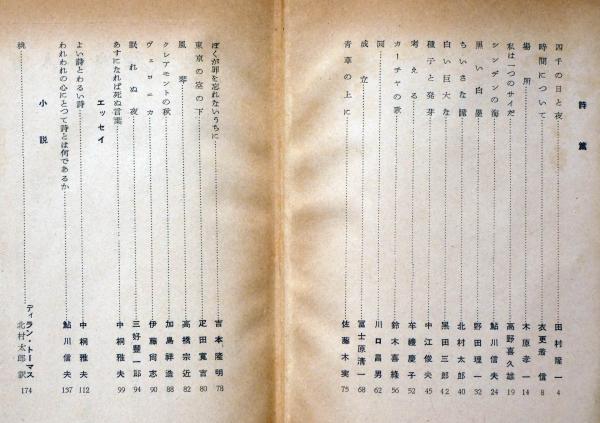 詩篇
四千の日と夜 田村隆一 4
時間について 衣更着信 8
場所 木原孝一 14
私は一つのサイだ 高野喜久雄 19
シンデンの海 鮎川信夫 24
黒い白墨 野田理一 32
ちいさな瞳 北村太郎 40
白い巨大な 黒田三郎 42
種子と発芽 中江俊夫 45
考える 牟礼慶子 52
カーチャの歌 鈴木喜緑 56
河 川口昌男 62
成立 冨士原清一 68
青草の上に 佐藤木実 75
ぼくが罪を忘れないうちに 吉本隆明 78
東京の空の下 疋田寛吉 80
風琴 高橋宗近 82
クレアモントの秋 加島祥造 88
ヴェロニカ 伊藤尚志 90
眠れぬ夜 三好豊一郎 94
あすになれば死ぬ言葉 中桐雅夫 99
エッセイ
よい詩とわるい詩 中桐雅夫 112
われわれの心にとつて詩とは何であるか 鮎川信夫 137
小説
桃 ディラン・トーマス 北村太郎訳 174